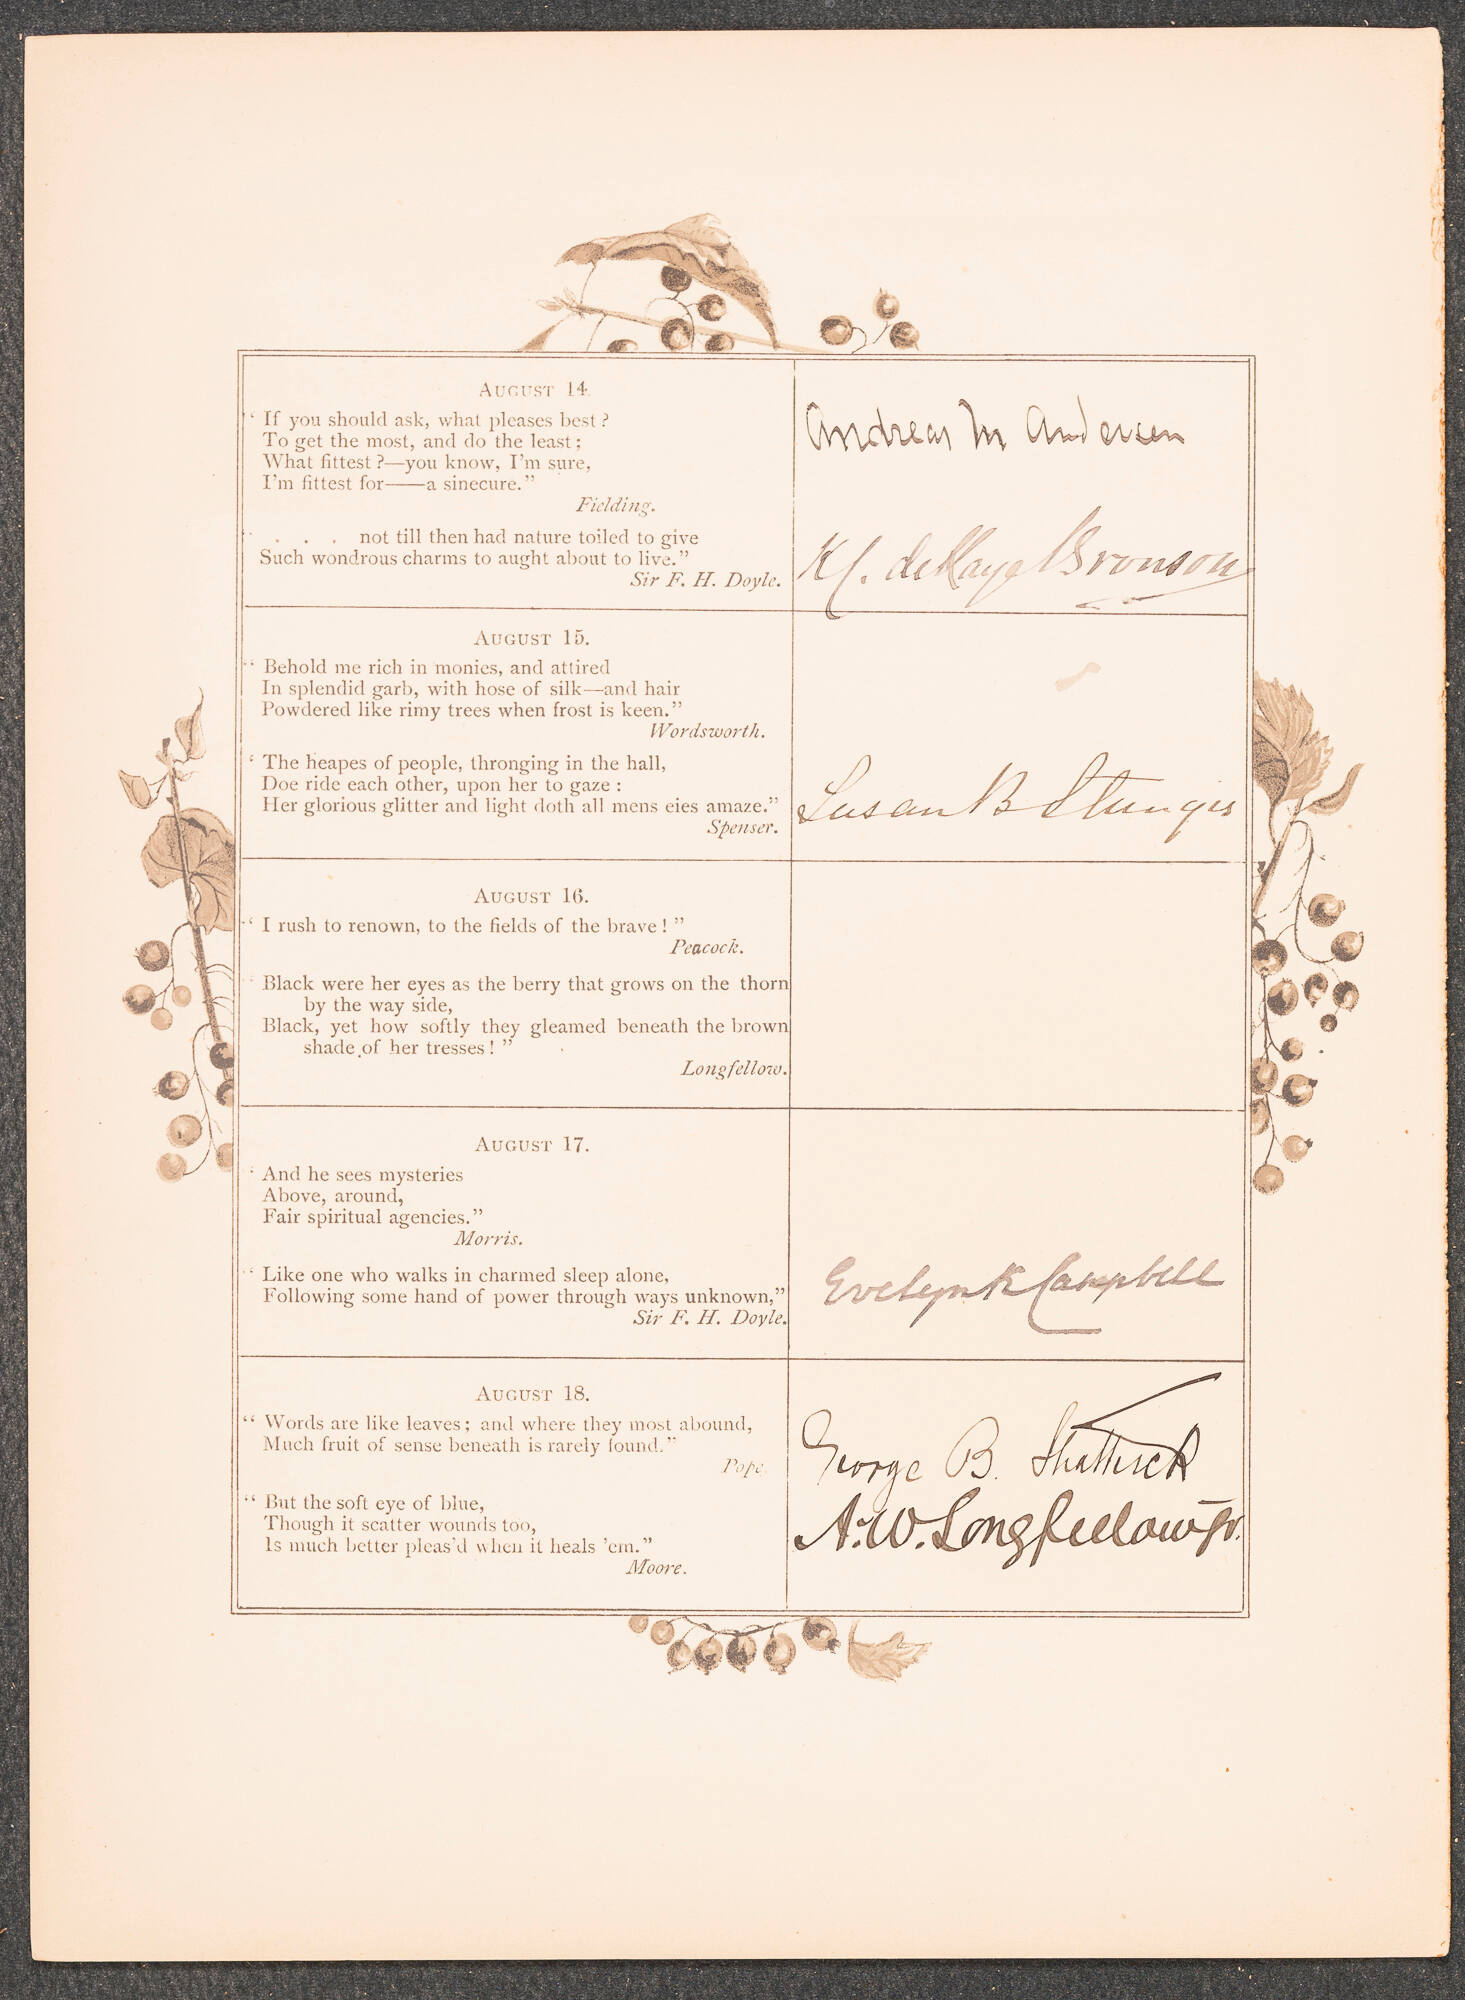 August 14.
“ If you should ask, what pleases best?
To get the most, and do the least;
What fittest?—you know, I'm sure,
I'm fittest for——a sinecure.”
Fielding.
Andreas M Andersen
“ . . . . not till then had nature toiled to give
Such wondrous charms to aught about to live.”
Sir F. H. Doyle.
Bronson
August 15.
“ Behold me rich in monies, and attired
In splendid garb, with hose of silk—and hair
Powdered like rimy trees when frost is keen.”
Wordsworth.
“ The heapes of people, thronging in the hall,
Doe ride each other, upon her to gaze :
Her glorious glitter and light doth all mens eies amaze.”
Spenser.
Susan B Sturgis
August 16.
“ I rush to renown, to the fields of the brave! ”
Peacock.
“ Black were her eyes as the berry that grows on the thorn
by the way side,
Black, yet how softly they gleamed beneath the brown
shade of her tresses! ”
Longfellow.
August 17.
“ And he sees mysteries
Above, around,
Fair spiritual agencies.”
Morris.
“ Like one who walks in charmed sleep alone,
Following some hand of power through ways unknown,”
Sir F. H. Doyle.
Evelyn K Campbell
August 18.
“ Words are like leaves; and where they most abound,
Much fruit of sense beneath is rarely found.”
Pope.
George B. Shattuck
“ But the soft eye of blue,
Though it scatter wounds too,
Is much better pleas'd when it heals 'em.”
Moore.
A. W. Longfellow Jr.